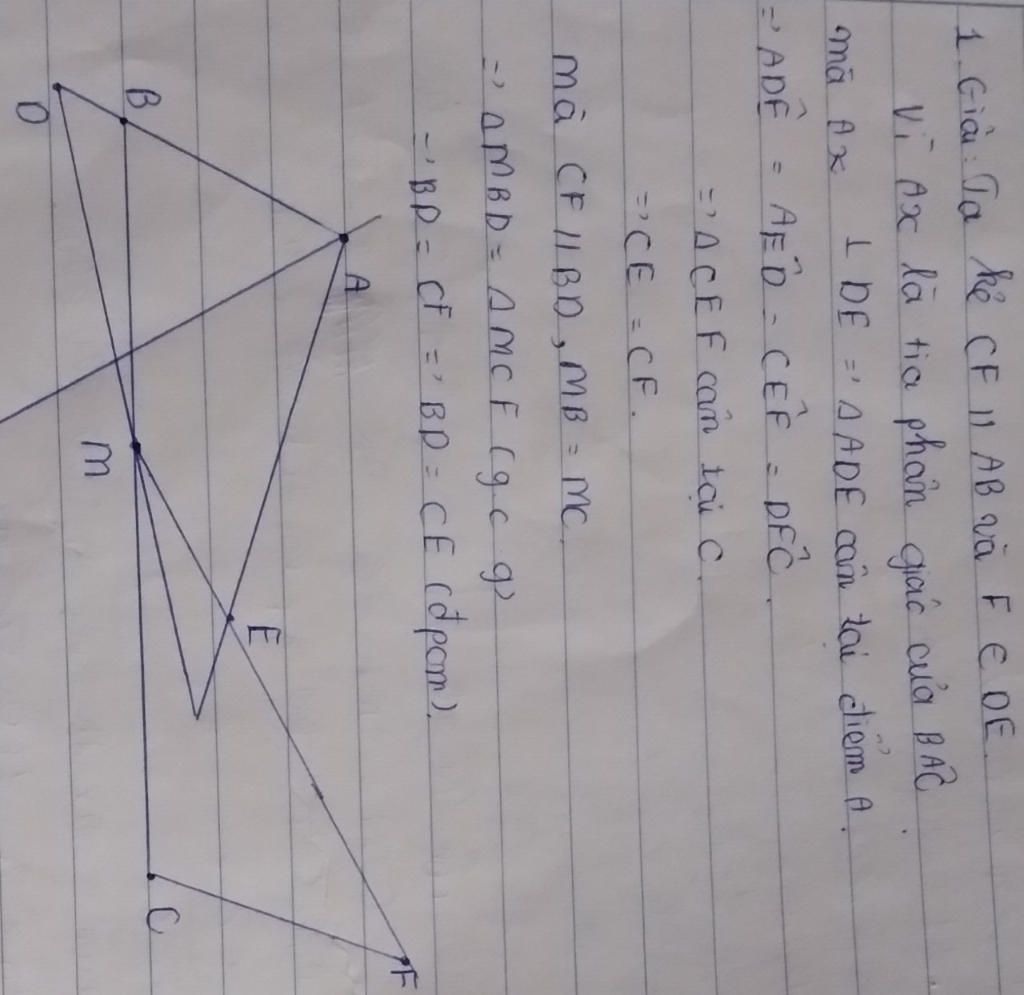 1. Giải: Ta kẻ CF // AB và F ∈ DE.
Vì Ax là tia phân giác của BÂC.
mà Ax ⊥ DE => Δ ADE cân tại điểm A.
=> AD̂E = AÊD = CÊF = DF̂C.
=> Δ CEF cân tại C.
=> CE = CF.
mà CF // BD, MB = MC.
=> Δ MBD = Δ MCF (g c g)
=> BD = CF => BD = CE (đpcm).
A
B
D
M
E
C
F